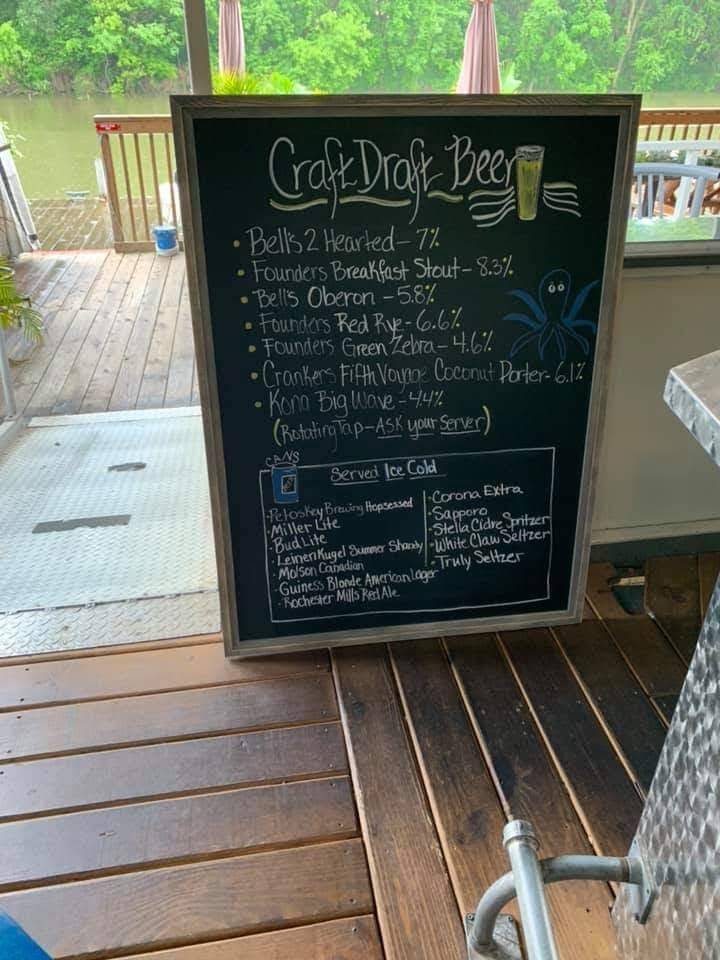 Craft Draft Beer
• Bell's 2 Hearted - 7%
• Founders Breakfast Stout - 8.3%
• Bell's Oberon - 5.8%
• Founders Red Rye - 6.6%
• Founders Green Zebra - 4.6%
• Crankers Fifth Voyage Coconut Porter - 6.1%
• Kona Big Wave - 4.4%
(Rotating Tap - ASK your Server)
CANS
Served Ice Cold
- Petoskey Brewing Hopsessed
- Miller Lite
- Bud Lite
- Leinenkugel Summer Shandy
- Molson Canadian
- Guiness Blonde American Lager
- Rochester Mills Red Ale
- Corona Extra
- Sapporo
- Stella Cidre Spritzer
- White Claw Seltzer
- Truly Seltzer